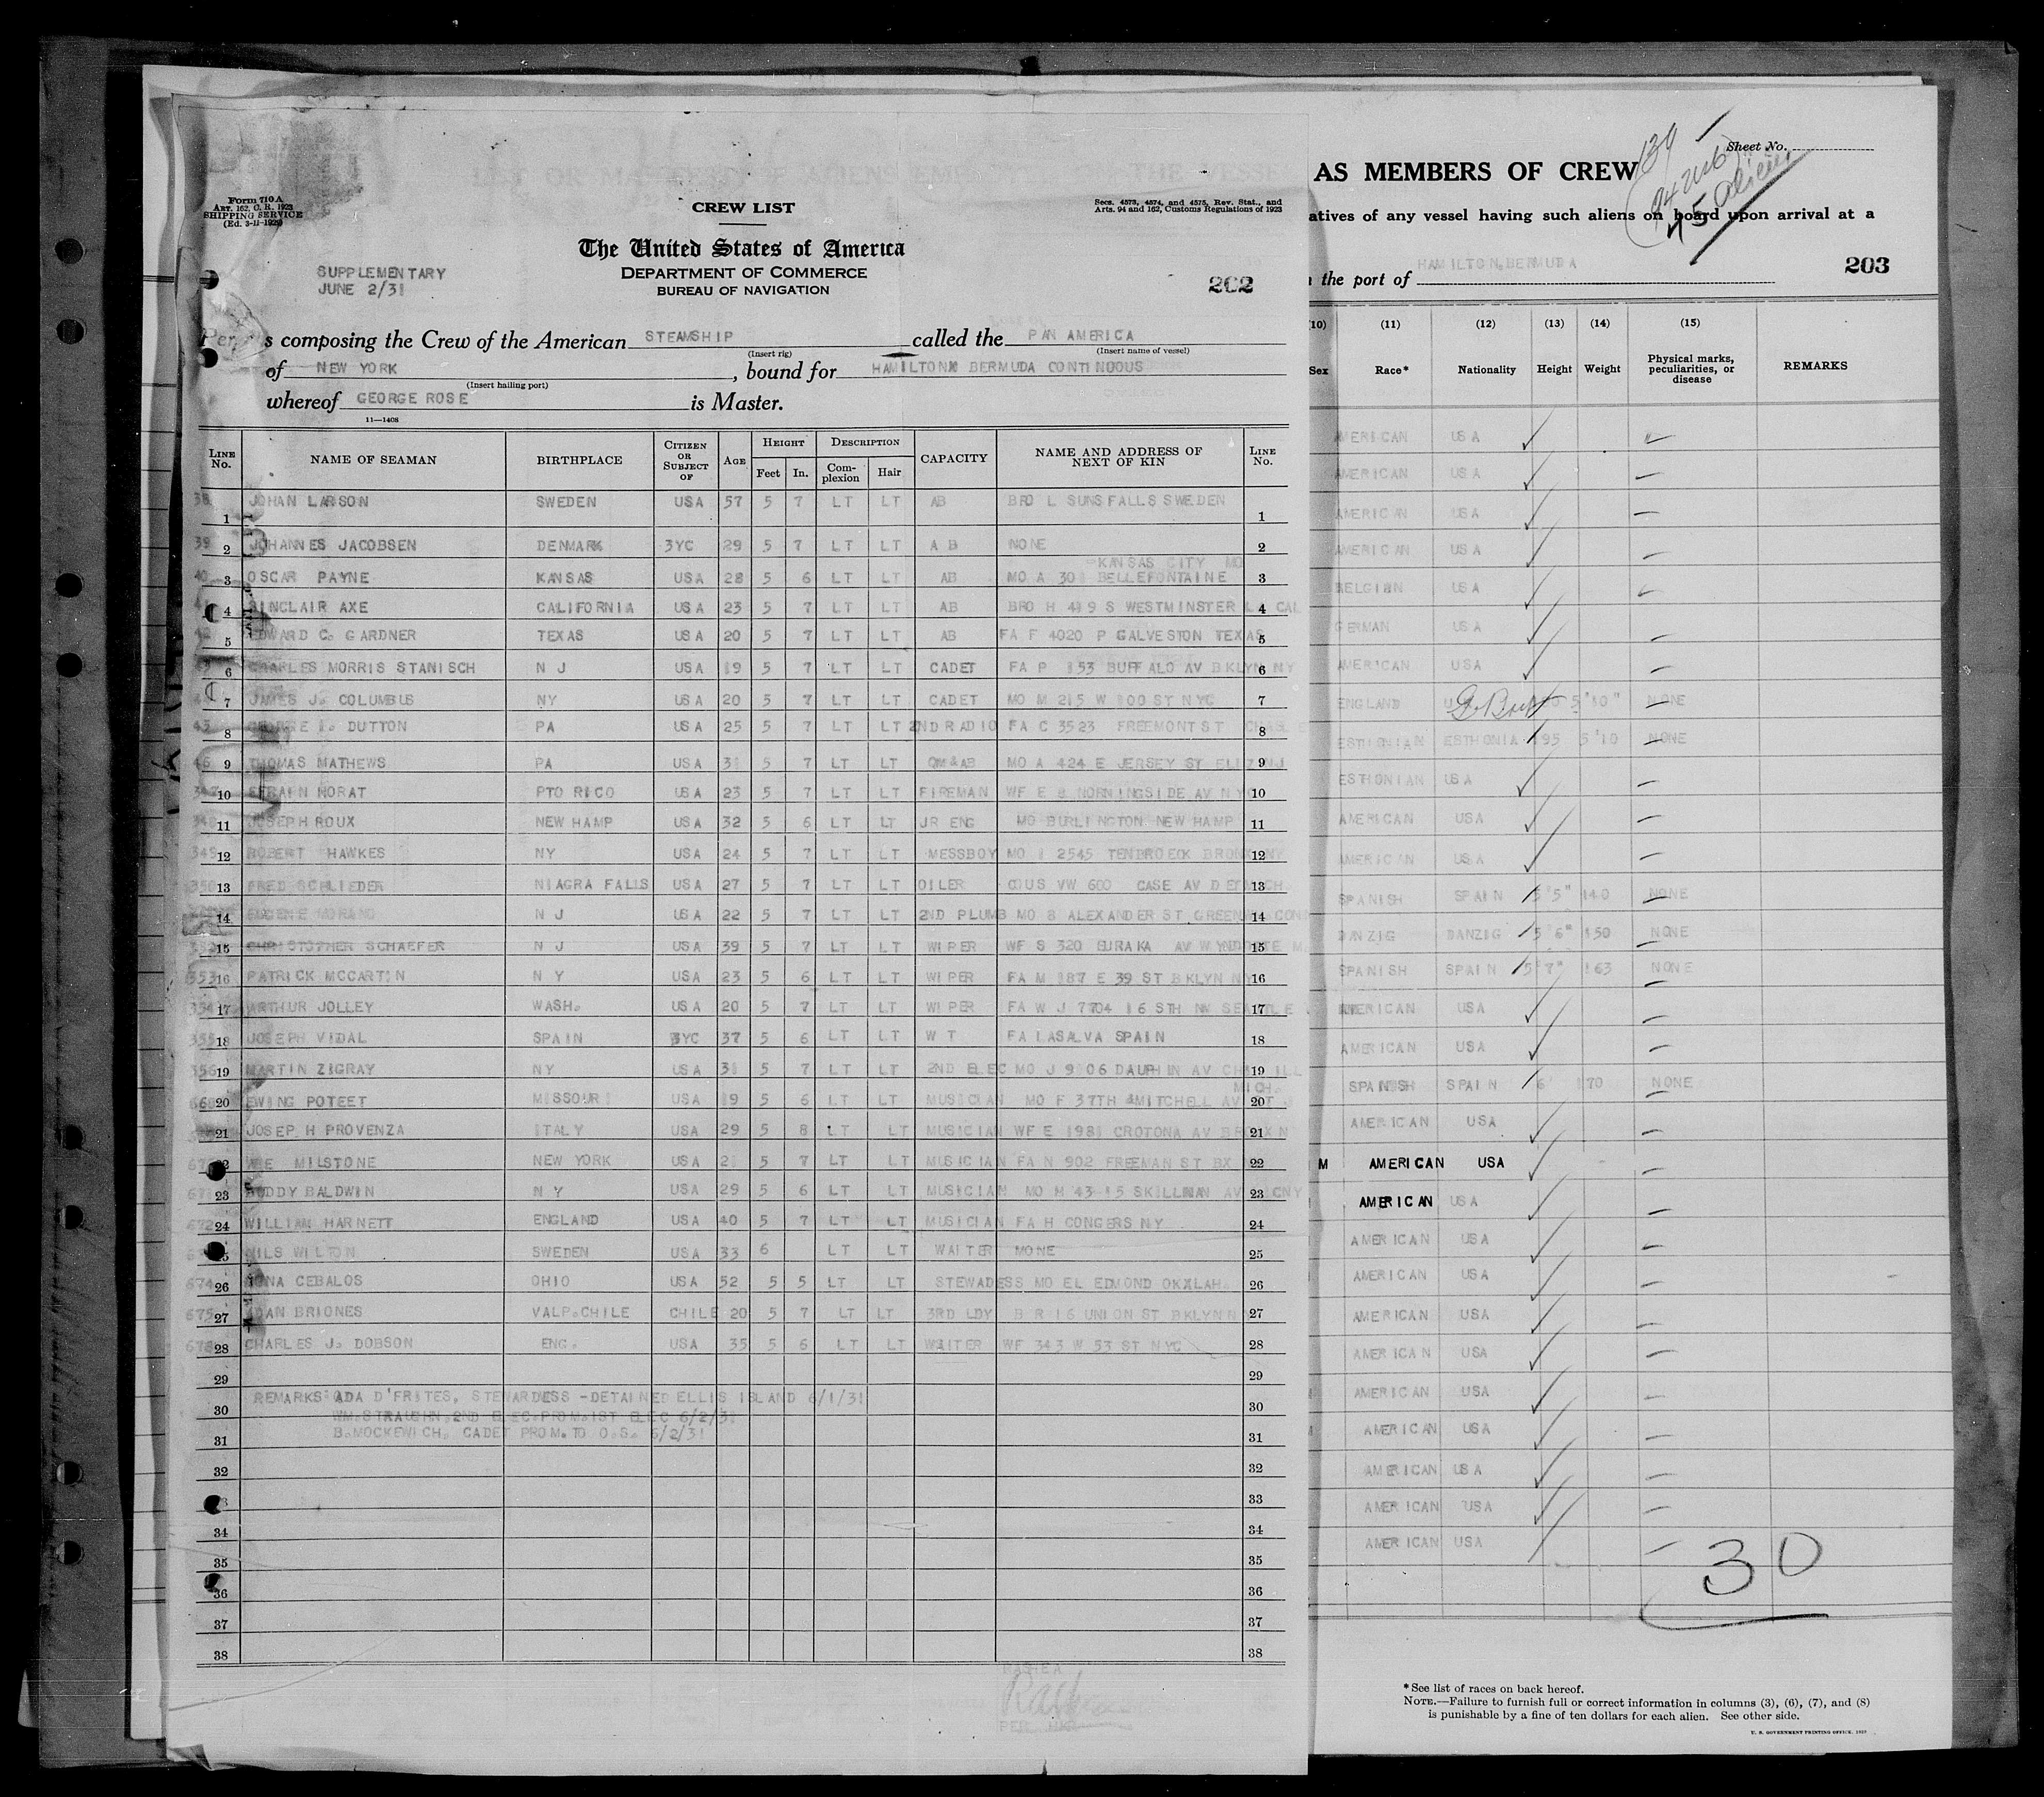 Form 710A
ART. 162, C. R. 1923
SHIPPING SERVICE
(Ed. 3-11-1929)
CREW LIST
Secs. 4573, 4574, and 4575, Rev. Stat., and
Arts. 94 and 162, Customs Regulations of 1923
The United States of America
DEPARTMENT OF COMMERCE
BUREAU OF NAVIGATION
SUPPLEMENTARY
JUNE 2/31
202
s composing the Crew of the American STEAMSHIP called the PAN AMERICA
(Insert rig) (Insert name of vessel)
of NEW YORK , bound for HAMILTON BERMUDA CONTINUOUS
(Insert hailing port)
whereof GEORGE ROSE is Master.
11—1408
LINE No. NAME OF SEAMAN BIRTHPLACE CITIZEN OR SUBJECT OF AGE HEIGHT Feet In. DESCRIPTION Complexion Hair CAPACITY NAME AND ADDRESS OF NEXT OF KIN LINE No.
38 1 JOHAN LARSON SWEDEN USA 57 5 7 LT LT AB BRO L SUNSFALLS SWEDEN 1
39 2 JOHANNES JACOBSEN DENMARK 3YC 29 5 7 LT LT A B NONE 2
KANSAS CITY MO
40 3 OSCAR PAYNE KANSAS USA 28 5 6 LT LT AB MO A 301 BELLEFONTAINE 3
4 SINCLAIR AXE CALIFORNIA USA 23 5 7 LT LT AB BRO H 419 S WESTMINSTER CAL 4
42 5 EDWARD C. GARDNER TEXAS USA 20 5 7 LT LT AB FA F 4020 P GALVESTON TEXAS 5
6 CHARLES MORRIS STANISCH N J USA 19 5 7 LT LT CADET FA P 153 BUFFALO AV BKLYN NY 6
7 JAMES J. COLUMBUS NY USA 20 5 7 LT LT CADET MO M 215 W 100 ST NYC 7
8 GEORGE DUTTON PA USA 25 5 7 LT LT 2ND RADIO FA C 3523 FREEMONT ST 8
46 9 THOMAS MATHEWS PA USA 31 5 7 LT LT QM&AB MO A 424 E JERSEY ST ELIZ NJ 9
10 EFRAIN MORAT PTO RICO USA 23 5 7 LT LT FIREMAN WF E 8 MORNINGSIDE AV N Y 10
348 11 JOSEPH ROUX NEW HAMP USA 32 5 6 LT LT JR ENG MO BURLINGTON NEW HAMP 11
349 12 ROBERT HAWKES NY USA 24 5 7 LT LT MESSBOY MO 2545 TENBROECK BRONX NY 12
350 13 FRED SCHLIEDER NIAGRA FALLS USA 27 5 7 LT LT OILER COUS VW 600 CASE AV 13
14 EUGENE MORANO N J USA 22 5 7 LT LT 2ND PLUMB MO 8 ALEXANDER ST GREENW CONN 14
15 CHRISTOPHER SCHAEFER N J USA 39 5 7 LT LT WIPER WF S 320 EURAKA AV WYNDOTTE M 15
353 16 PATRICK MCCARTIN N Y USA 23 5 6 LT LT WIPER FA M 187 E 39 ST BKLYN NY 16
354 17 ARTHUR JOLLEY WASH. USA 20 5 7 LT LT WIPER FA W J 7704 16 STH NW SEATTLE 17
355 18 JOSEPH VIDAL SPAIN 3YC 37 5 6 LT LT W T FA LASALVA SPAIN 18
356 19 MARTIN ZIGRAY NY USA 31 5 7 LT LT 2ND ELEC MO J 9106 DAUPHIN AV CHI ILL 19
MICH.
20 EWING POTEET MISSOURI USA 19 5 6 LT LT MUSICIAN MO F 37TH &MITCHELL AV 20
21 JOSEPH PROVENZA ITALY USA 29 5 8 LT LT MUSICIAN WF E 1981 CROTONA AV BRONX N 21
MILSTONE NEW YORK USA 21 5 7 LT LT MUSICIAN FA N 902 FREEMAN ST BX 22
23 BUDDY BALDWIN N Y USA 29 5 6 LT LT MUSICIAN MO M 43 15 SKILLMAN AV LICNY 23
672 24 WILLIAM HARNETT ENGLAND USA 40 5 7 LT LT MUSICIAN FA H CONGERS NY 24
NILS WILTON SWEDEN USA 33 6 LT LT WAITER MONE 25
674 26 NONA CEBALOS OHIO USA 52 5 5 LT LT STEWADESS MO EL EDMOND OKALAH. 26
675 27 ADAN BRIONES VALP.CHILE CHILE 20 5 7 LT LT 3RD LDY B R 16 UNION ST BKLYN N 27
676 28 CHARLES J. DOBSON ENG. USA 35 5 6 LT LT WAITER WF 343 W 53 ST NYC 28
29 29
30 REMARKS: ADA D'FRITES, STEWARDESS -DETAINED ELLIS ISLAND 6/1/31 30
WM.STRAUGHN.2ND ELEC.PROM.1ST ELEC 6/2/31
31 B.MOCKEWICH. CADET PROM. TO O.S. 6/2/31 31
32 32
33
34 34
35 35
36 36
37 37
38 38
RASHEA
Sheet No.
AS MEMBERS OF CREW
139
94 USC
45 Aliens
atives of any vessel having such aliens on board upon arrival at a
the port of HAMILTON, BERMUDA
203
(10) (11) (12) (13) (14) (15)
Sex Race* Nationality Height Weight Physical marks, peculiarities, or disease REMARKS
AMERICAN USA
AMERICAN USA
AMERICAN USA
AMERICAN USA
BELGIAN USA
GERMAN USA
AMERICAN USA
ENGLAND G. Brit 5'10" NONE
ESTHONIAN ESTHONIA 195 5'10 NONE
ESTHONIAN USA
AMERICAN USA
AMERICAN USA
SPANISH SPAIN 5'5" 140 NONE
DANZIG DANZIG 5'6" 150 NONE
SPANISH SPAIN 5'7" 163 NONE
AMERICAN USA
AMERICAN USA
SPANISH SPAIN 6' 170 NONE
AMERICAN USA
M AMERICAN USA
AMERICAN USA
AMERICAN USA
AMERICAN USA
AMERICAN USA
AMERICAN USA
AMERICAN USA
AMERICAN USA
AMERICAN USA
AMERICAN USA
AMERICAN USA
30
*See list of races on back hereof.
NOTE.—Failure to furnish full or correct information in columns (3), (6), (7), and (8)
is punishable by a fine of ten dollars for each alien. See other side.
U. S. GOVERNMENT PRINTING OFFICE. 1929